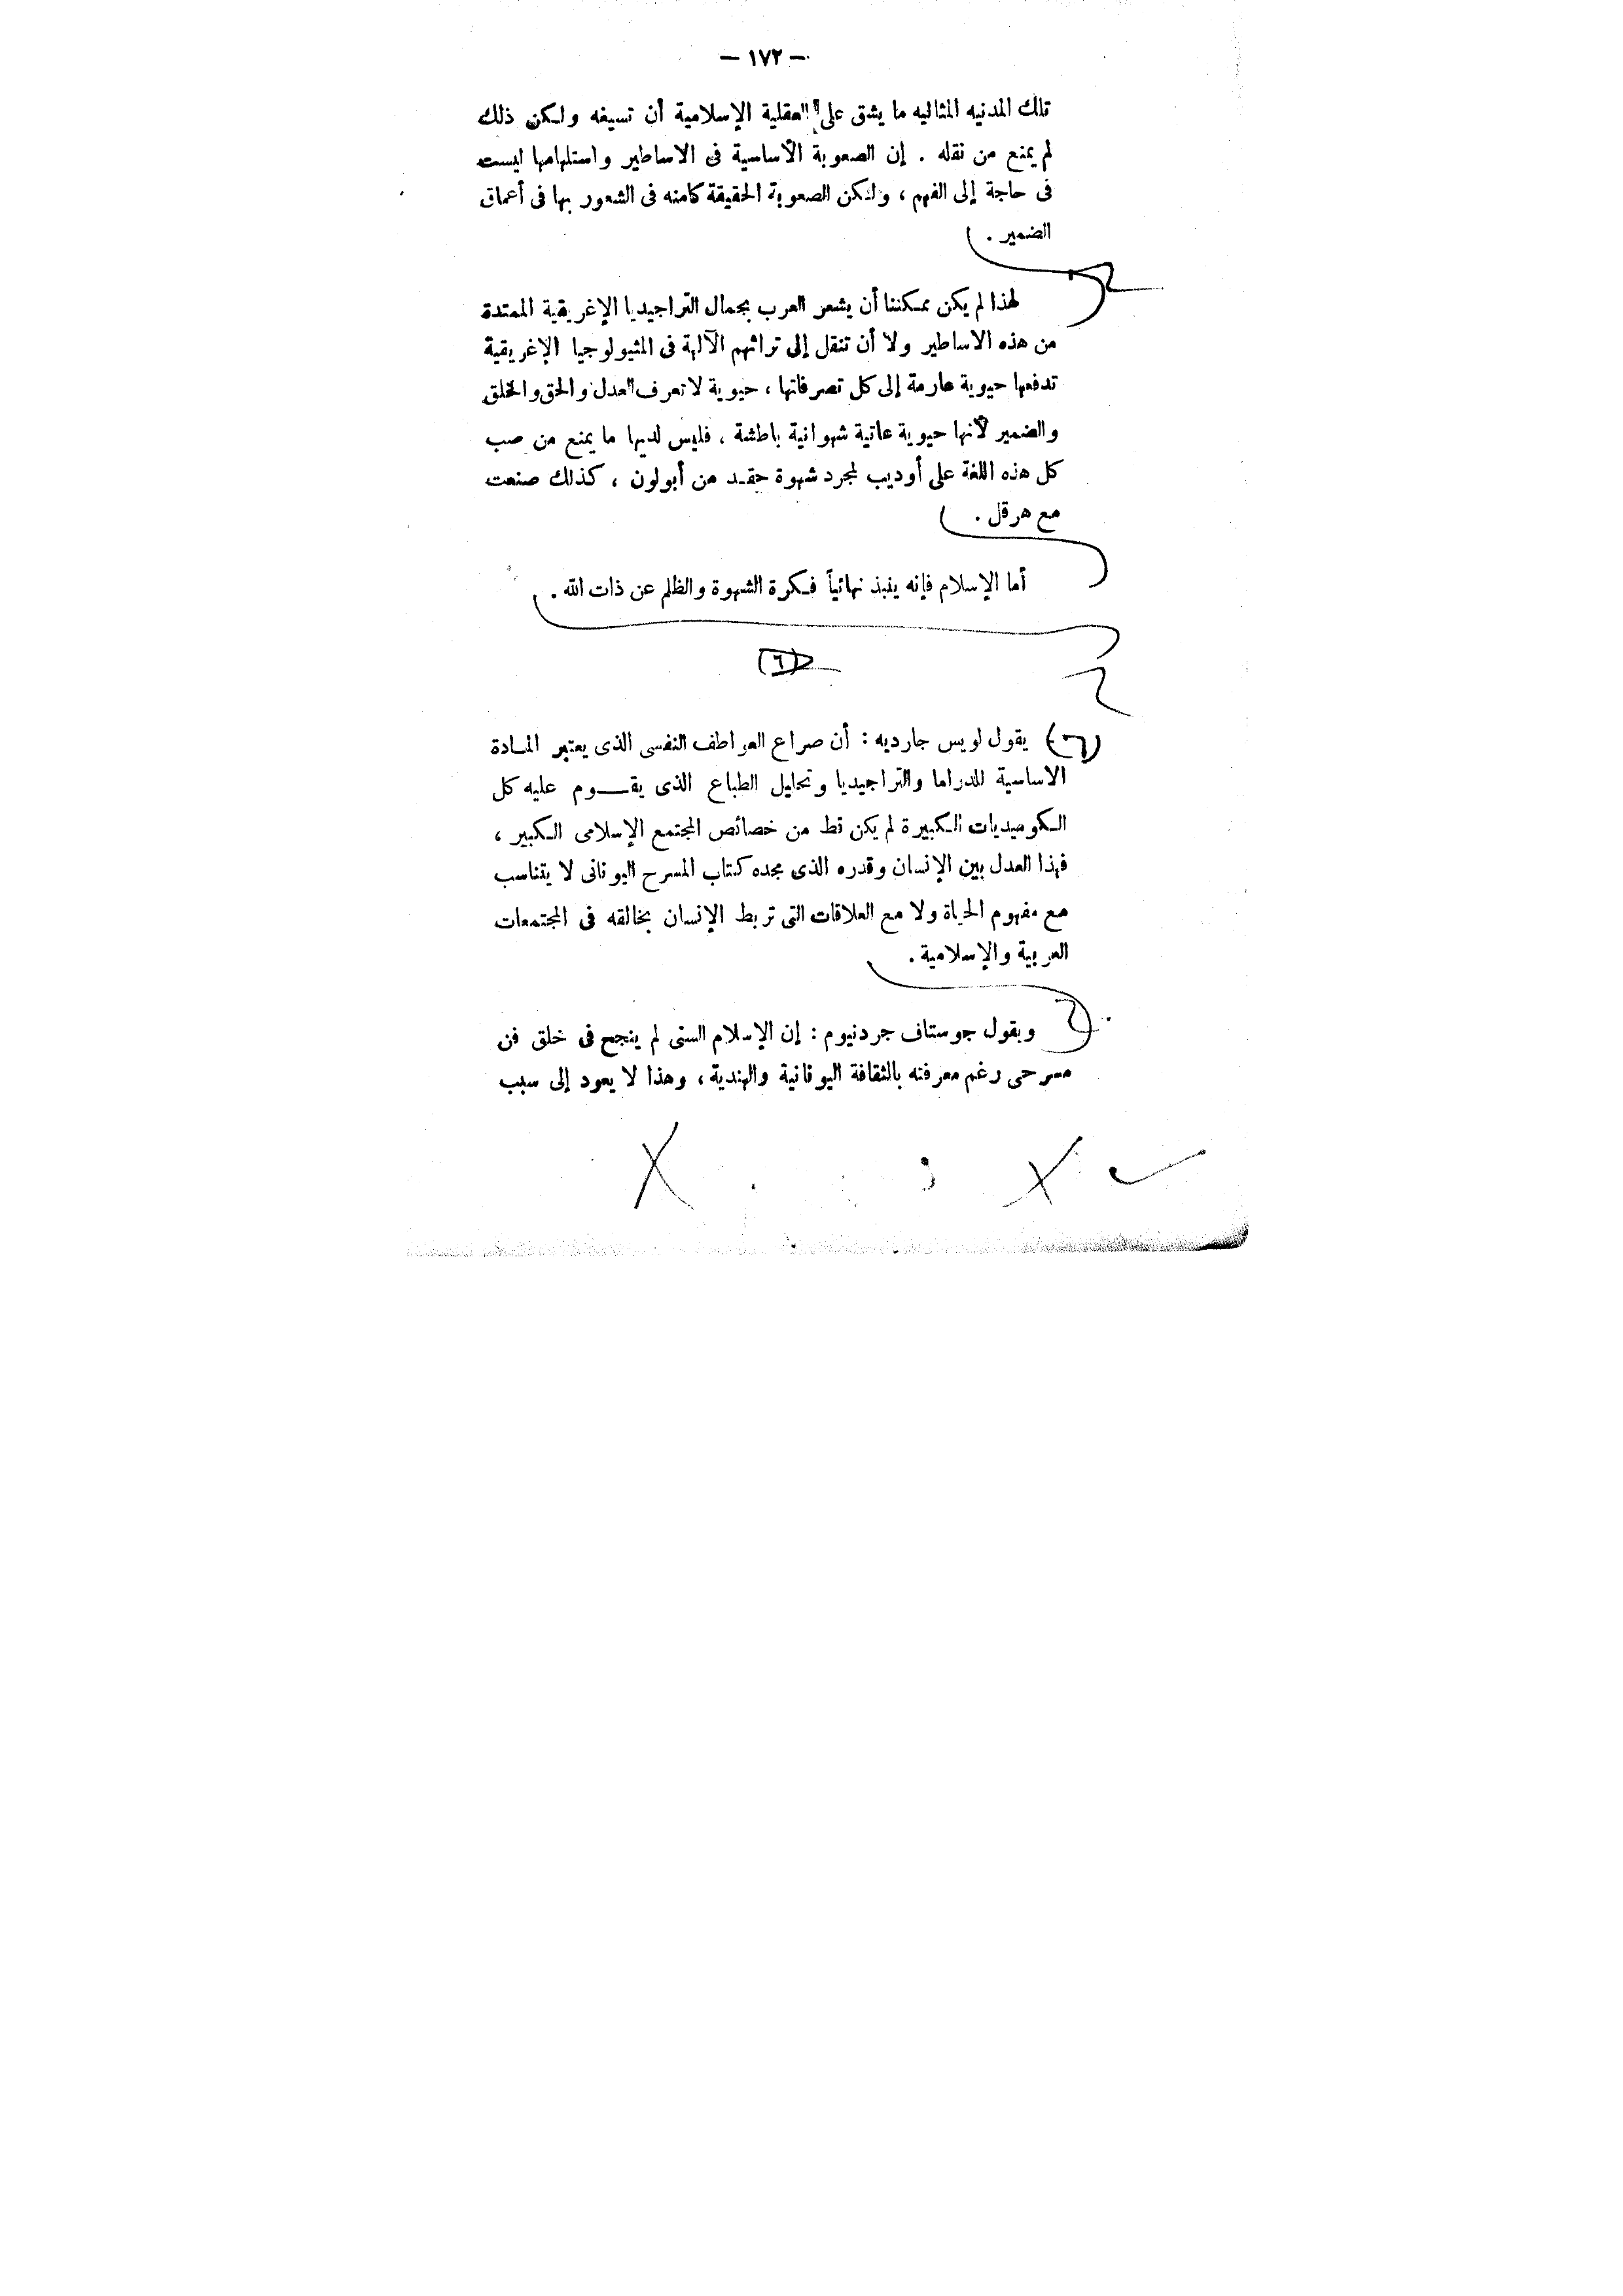 — ١٧٢ —
تلك المدنيه المثاليه ما يشق على العقلية الإسلامية أن تسيغه ولكن ذلك
لم يمنع من نقله . إن الصعوبة الأساسية فى الاساطير واستلهامها ليست
فى حاجة إلى الفهم ، ولكن الصعوبة الحقيقة كامنه فى الشعور بها فى أعماق
الضمير .
لهذا لم يكن ممكننا أن يشعر العرب بجمال التراجيديا الإغريقية الممتدة
من هذه الاساطير ولا أن تنقل إلى تراثهم الآلهة فى المثيولوجيا الإغريقية
تدفعها حيوية عارمة إلى كل تصرفاتها ، حيوية لا تعرف العدل والحق والخلق
والضمير لأنها حيوية عاتية شهوانية باطشة ، فليس لديها ما يمنع من صب
كل هذه اللغة على أوديب لمجرد شهوة حقد من أبولون ، كذلك صنعت
مع هرقل .
أما الإسلام فإنه ينبذ نهائياً فكرة الشهوة والظلم عن ذات الله .
(٦)
(٦) يقول لويس جارديه : أن صراع العواطف النفسى الذى يعتبر المادة
الاساسية للدراما والتراجيديا وتحليل الطباع الذى يقـــوم عليه كل
الكوميديات الكبيرة لم يكن قط من خصائص المجتمع الإسلامى الكبير ،
فهذا العدل بين الإنسان وقدره الذى مجده كتاب المسرح اليونانى لا يتناسب
مع مفهوم الحياة ولا مع العلاقات التى تربط الإنسان بخالقه فى المجتمعات
العربية والإسلامية .
ويقول جوستاف جردنيوم : إن الإسلام السنى لم ينجح فى خلق فن
مسرحى رغم معرفته بالثقافة اليونانية والهندية ، وهذا لا يعود إلى سبب